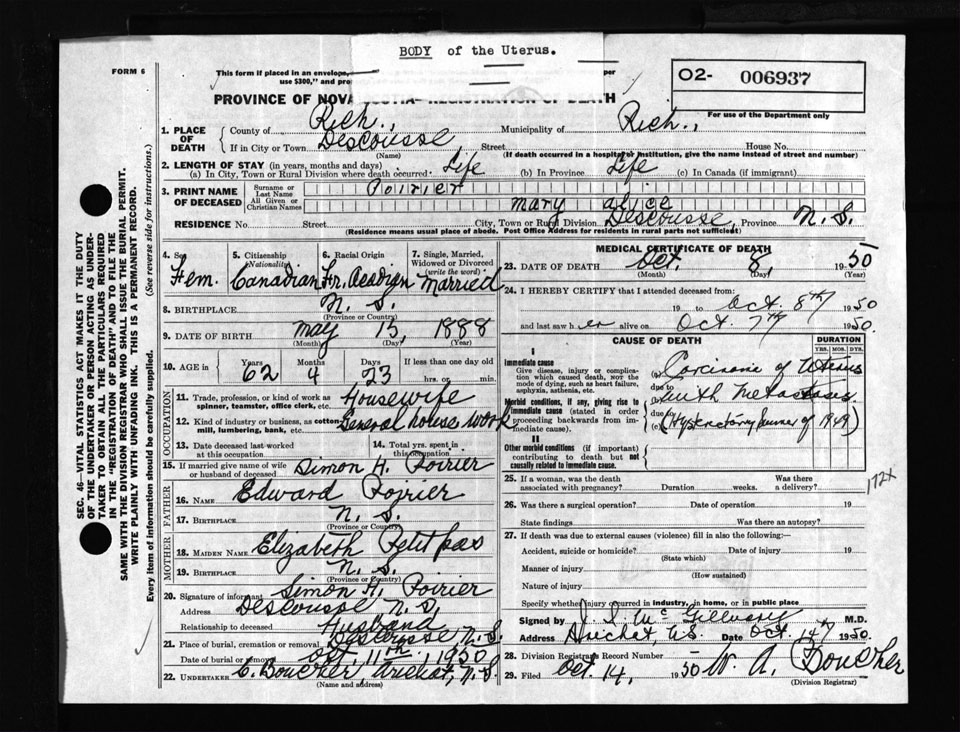 BODY of the Uterus.
FORM 6
This form if placed in an envelope, per
use $300," and pro
O2- 006937
For use of the Department only
PROVINCE OF NOVA SCOTIA—REGISTRATION OF DEATH
1. PLACE OF DEATH County of Rich., Municipality of Rich.,
If in City or Town DesCousse Street House No.
(Name) (If death occurred in a hospital or institution, give the name instead of street and number)
2. LENGTH OF STAY (in years, months and days)
(a) In City, Town or Rural Division where death occurred. Life (b) In Province Life (c) In Canada (if immigrant)
3. PRINT NAME OF DECEASED Surname or Last Name Poirier
All Given or Christian Names Mary Alice
RESIDENCE No. Street City, Town or Rural Division Descousse, Province N. S.
(Residence means usual place of abode. Post Office Address for residents in rural parts not sufficient)
4. Sex 5. Citizenship (Nationality) 6. Racial Origin 7. Single, Married, Widowed or Divorced (write the word)
Fem. Canadian Fr. Acadian Married
8. BIRTHPLACE N. S.
(Province or Country)
9. DATE OF BIRTH May 15, 1888
(Month) (Day) (Year)
10. AGE in Years Months Days If less than one day old
62 4 23 hrs. or min.
OCCUPATION
11. Trade, profession, or kind of work as spinner, teamster, office clerk, etc. Housewife
12. Kind of industry or business, as cotton mill, lumbering, bank, etc. General house work
13. Date deceased last worked at this occupation
14. Total yrs. spent in this occupation
15. If married give name of wife or husband of deceased Simon H. Poirier
FATHER
16. NAME Edward Poirier
17. BIRTHPLACE N. S.
(Province or Country)
MOTHER
18. MAIDEN NAME Elizabeth Petit pas
19. BIRTHPLACE N. S.
(Province or Country)
20. Signature of informant Simon H. Poirier
Address Descousse N. S.
Relationship to deceased Husband
21. Place of burial, cremation or removal Descousse N. S.
Date of burial or removal Oct. 11th, 1950
22. UNDERTAKER C. Boucher, Arichat, N. S.
(Name and address)
MEDICAL CERTIFICATE OF DEATH
23. DATE OF DEATH Oct. 8, 1950
(Month) (Day) (Year)
24. I HEREBY CERTIFY that I attended deceased from:
19 to Oct. 8th 1950
and last saw her alive on Oct. 7th 1950.
CAUSE OF DEATH DURATION
YRS. MOS. DYS.
I
Immediate cause
Give disease, injury or complication which caused death, NOT the mode of dying, such as heart failure, asphyxia, asthenia, etc.
(a) Carcinoma of Uterus
due to
Morbid conditions, if any, giving rise to immediate cause (stated in order proceeding backwards from immediate cause).
(b) with Metastases
due to
(c) (Hysterectomy summer of 1949)
II
Other morbid conditions (if important) contributing to death but not causally related to immediate cause.
25. If a woman, was the death associated with pregnancy? Duration weeks. Was there a delivery?
172x
26. Was there a surgical operation? Date of operation 19
State findings Was there an autopsy?
27. If death was due to external causes (violence) fill in also the following:—
Accident, suicide or homicide? Date of injury 19
(State which)
Manner of injury
(How sustained)
Nature of injury
Specify whether injury occurred in industry, in home, or in public place
Signed by M.D.
Address Arichat, N.S. Date Oct. 14th 1950.
28. Division Registrars Record Number
29. Filed Oct. 14, 1950 W. A. Boucher
(Division Registrar)
SEC. 46—VITAL STATISTICS ACT MAKES IT THE DUTY
OF THE UNDERTAKER OR PERSON ACTING AS UNDER-
TAKER TO OBTAIN ALL THE PARTICULARS REQUIRED
IN THE "REGISTRATION OF DEATH" AND TO FILE THE
SAME WITH THE DIVISION REGISTRAR WHO SHALL ISSUE THE BURIAL PERMIT.
WRITE PLAINLY WITH UNFADING INK. THIS IS A PERMANENT RECORD.
Every item of information should be carefully supplied. (See reverse side for instructions.)